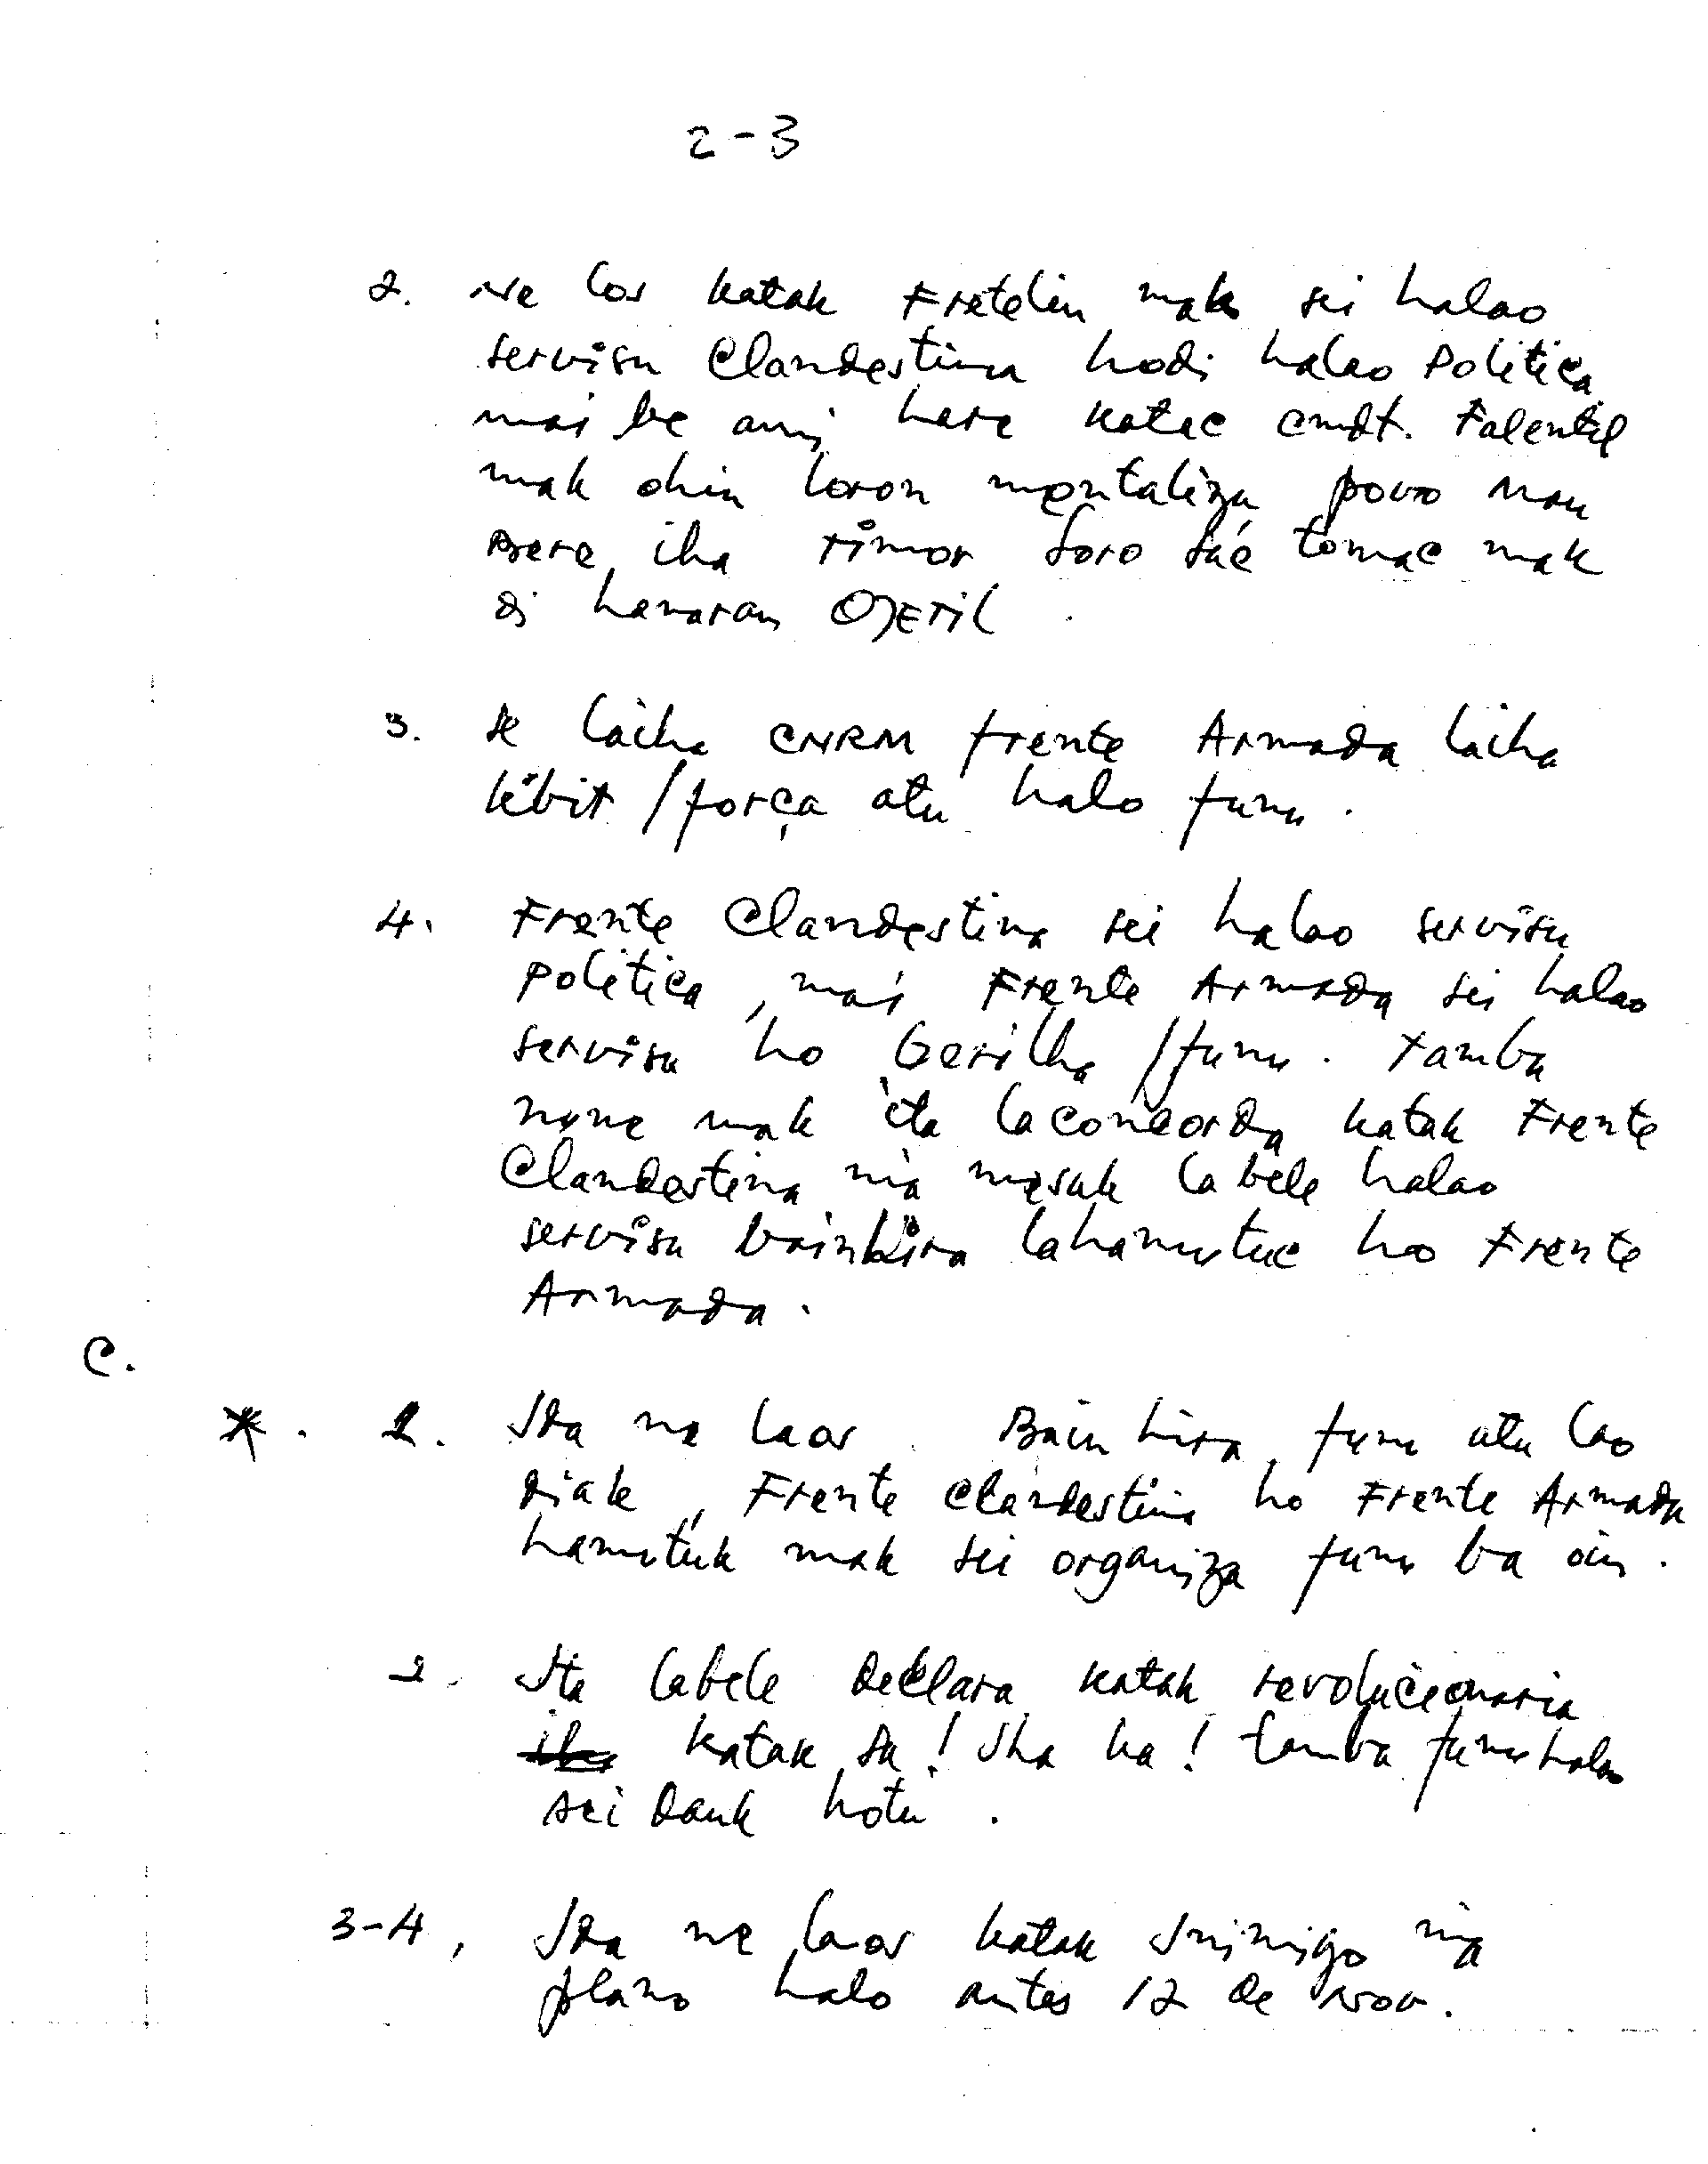 2-3
2. Ne los katak Fretelin mak sei halao
servisu Clandestina hodi halao Politica
mai be ami hare katac cmdt. Falentil
mak ohin loron mentaliza povo Mau
Bere iha Timor Loro Sa'e tomac mak
di hanaran OJETIL
3. se laiha CNRM frente Armada laiha
kbiit / força atu halo funu.
4. Frente Clandestina sei halao servisu
Politica, mai Frente Armada sei halao
servisu ho Gerilha / funu. Tamba
nune mak ita laconcorda katak Frente
Clandestina nia mesak labele halao
servisu bainhira lahamutuc ho Frente
Armada.
C.
*. 1. Ida ne laos. Bain hira funu atu lao
diak, Frente Clandestina ho Frente Armada
hamutuk mak sei organiza funu ba oin.
2. Ita labele declara katak revolucionaria
katak sa! Iha ka! tamba funu halao
sei dauk hotu.
3-4, Ida ne laos katak Inimigo nia
plano halo antes 12 de Nov.